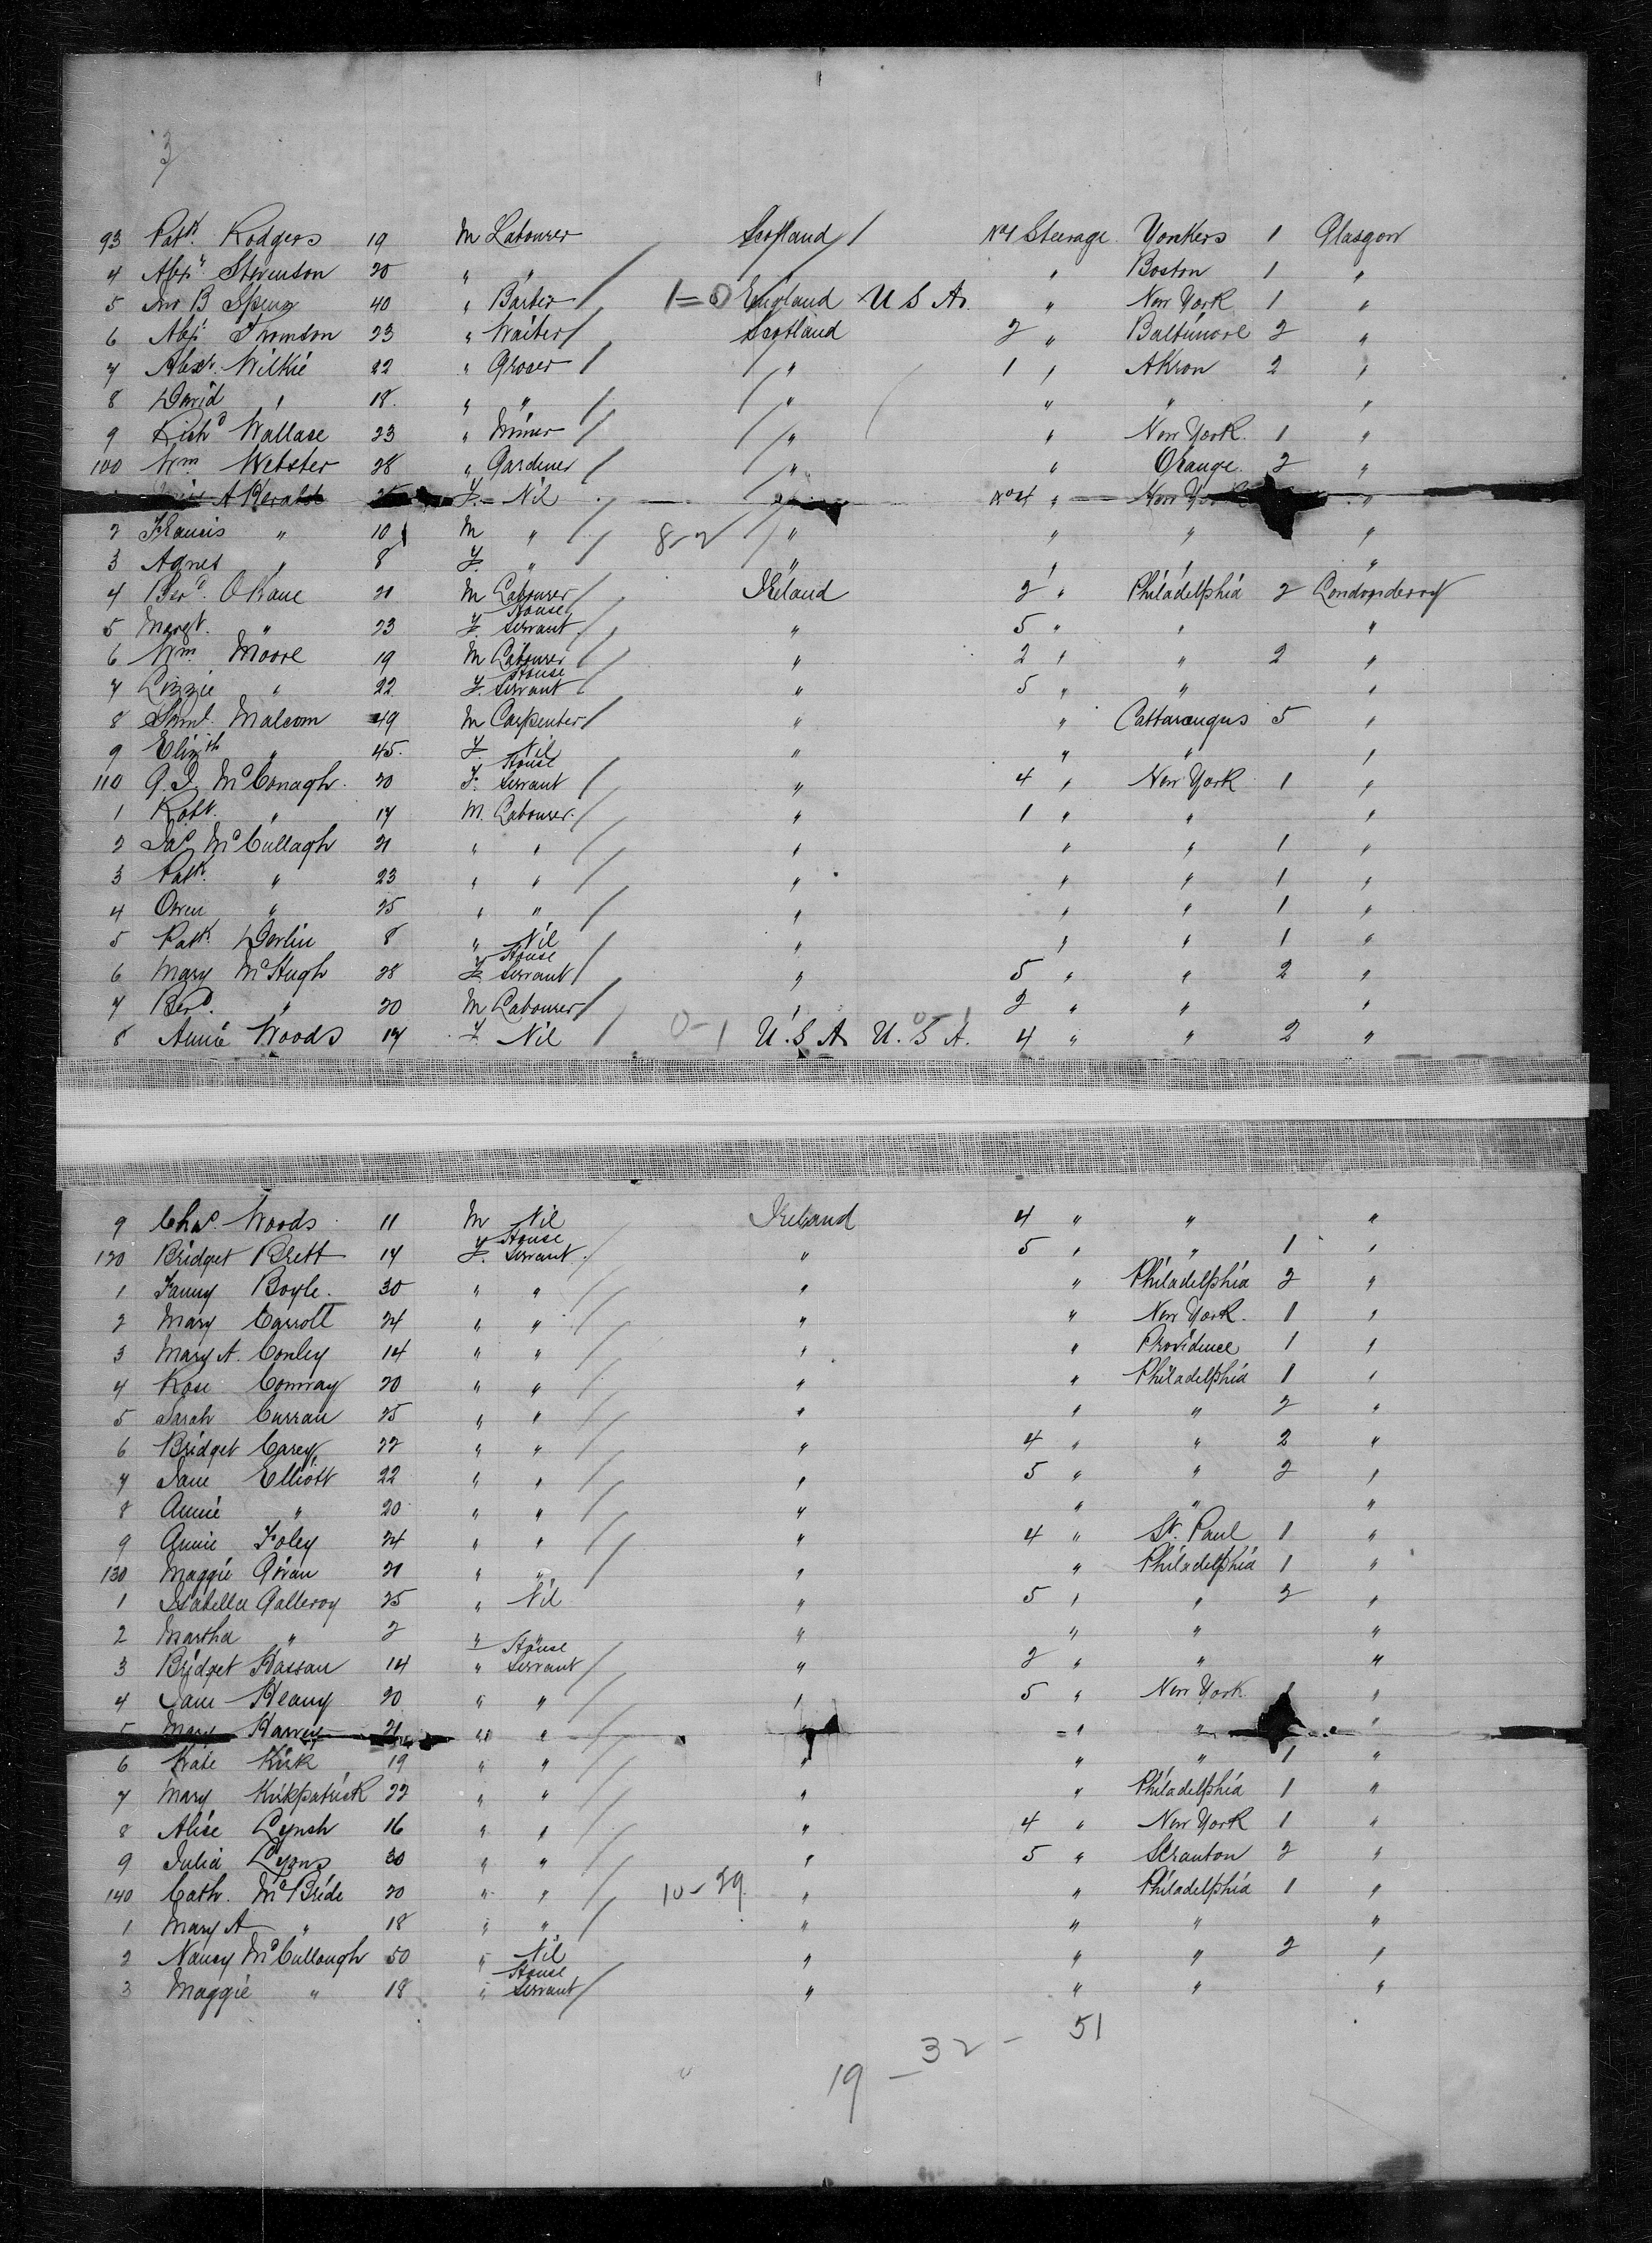 3
93 Patk. Rodgers 19 M Labourer Scotland No 1 Steerage Yonkers 1 Glasgow
4 Alexr. Stevenson 20 " " " Boston 1 "
5 Jno B 40 " Barber 1=0 England U S A. " New York 1 "
6 Alexr. Thomson 23 " Waiter Scotland 2 " Baltimore 2 "
7 Alexr. Wilkie 22 " Grocer " 1 " Akron 2 "
8 David " 18 " " " " " "
9 Richd Wallace 23 " Miner " " New York 1 "
100 Wm. Webster 28 " Gardener " " Orange 2 "
A F. Nil " No 4 " New York "
2 Francis " 10 M " 8-2 " " " "
3 Agnes " 8 F. " " " " "
4 Berd. O'Kane 21 M Labourer Ireland 2 " Philadelphia 2 Londonderry
5 Margt. " 23 F. House Servant " 5 " " "
6 Wm. Moore 19 M Labourer " 2 " " 2 "
7 Lizzie " 22 F. House Servant " 5 " " "
8 Saml. Malcom 49 M Carpenter " " Cattaraugus 5 "
9 Elizth " 45 F. Nil " " " "
110 McConagh 20 F. House Servant " 4 " New York 1 "
1 Robt. " 17 M. Labourer " 1 " " "
2 Jas McCullagh 21 " " " " " 1 "
3 Patk. " 23 " " " " " 1 "
4 Owen " 25 " " " " " 1 "
5 Patk. Devlin 8 " Nil " " " 1 "
6 Mary McHugh 28 F House Servant " 5 " " 2 "
7 Berd. " 20 M Labourer " 2 " " "
8 Annie Woods 17 F Nil 0-1 U.S.A. U.S.A. 0-1 4 " " 2 "
9 Chas. Woods 11 M Nil Ireland 4 " " "
120 Bridget Brett 17 F. House Servant " 5 " " 1 "
1 Fanny Boyle 30 " " " " Philadelphia 2 "
2 Mary Carroll 24 " " " " New York 1 "
3 Mary A. Conley 14 " " " " Providence 1 "
4 Rose Conway 20 " " " " Philadelphia 1 "
5 Sarah Curran 25 " " " " " 2 "
6 Bridget Carey 22 " " " 4 " " 2 "
7 Jane Elliott 22 " " " 5 " " 2 "
8 Annie " 20 " " " " " "
9 Annie Foley 24 " " " 4 " St. Paul 1 "
130 Maggie 21 " " " " Philadelphia 1 "
1 Isabella 25 " Nil " 5 " " 2 "
2 Martha " 2 " " " " " "
3 Bridget Hassan 14 " House Servant " 2 " " "
4 Jane Heany 20 " " " 5 " New York 1 "
5 Mary Harvey 21 " " " " " "
6 Kate Kirk 19 " " " " " 1 "
7 Mary Kirkpatrick 22 " " " " Philadelphia 1 "
8 Alice Lynch 16 " " " 4 " New York 1 "
9 Julia Lyons 30 " " " 5 " Scranton 2 "
140 Cath. McBride 20 " " 10-29 " " Philadelphia 1 "
1 Mary A " 18 " " " " " "
2 Nancy McCullough 50 " Nil " " " 2 "
3 Maggie " 18 " House Servant " " " "
19 - 32 - 51